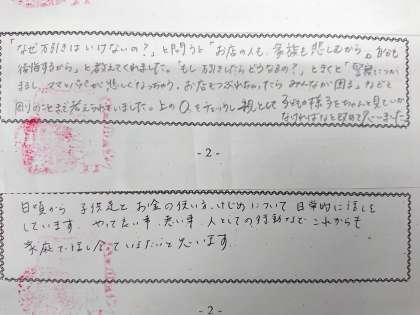 「なぜ万引きはいけないの?」と問うと「お店の人も、家族も悲しむから。自分も
後悔するから」と教えてくれました。「もし万引きしたらどうなるの?」ときくと「警察につか
まるし、ママとパパが悲しくなっちゃう。お店もつぶれちゃったらみんなが困る」などと
周りのことまで考えられていました。上のQをチェックし親として子どもの様子をちゃんと見ていか
なければなと改めて思いました
- 2 -
日頃から 子供達と お金の使い方、けじめについて 日常的に話を
しています。やって良い事、悪い事、人としての 行動など これからも
家庭で話し合っていきたいと思います。
- 2 -